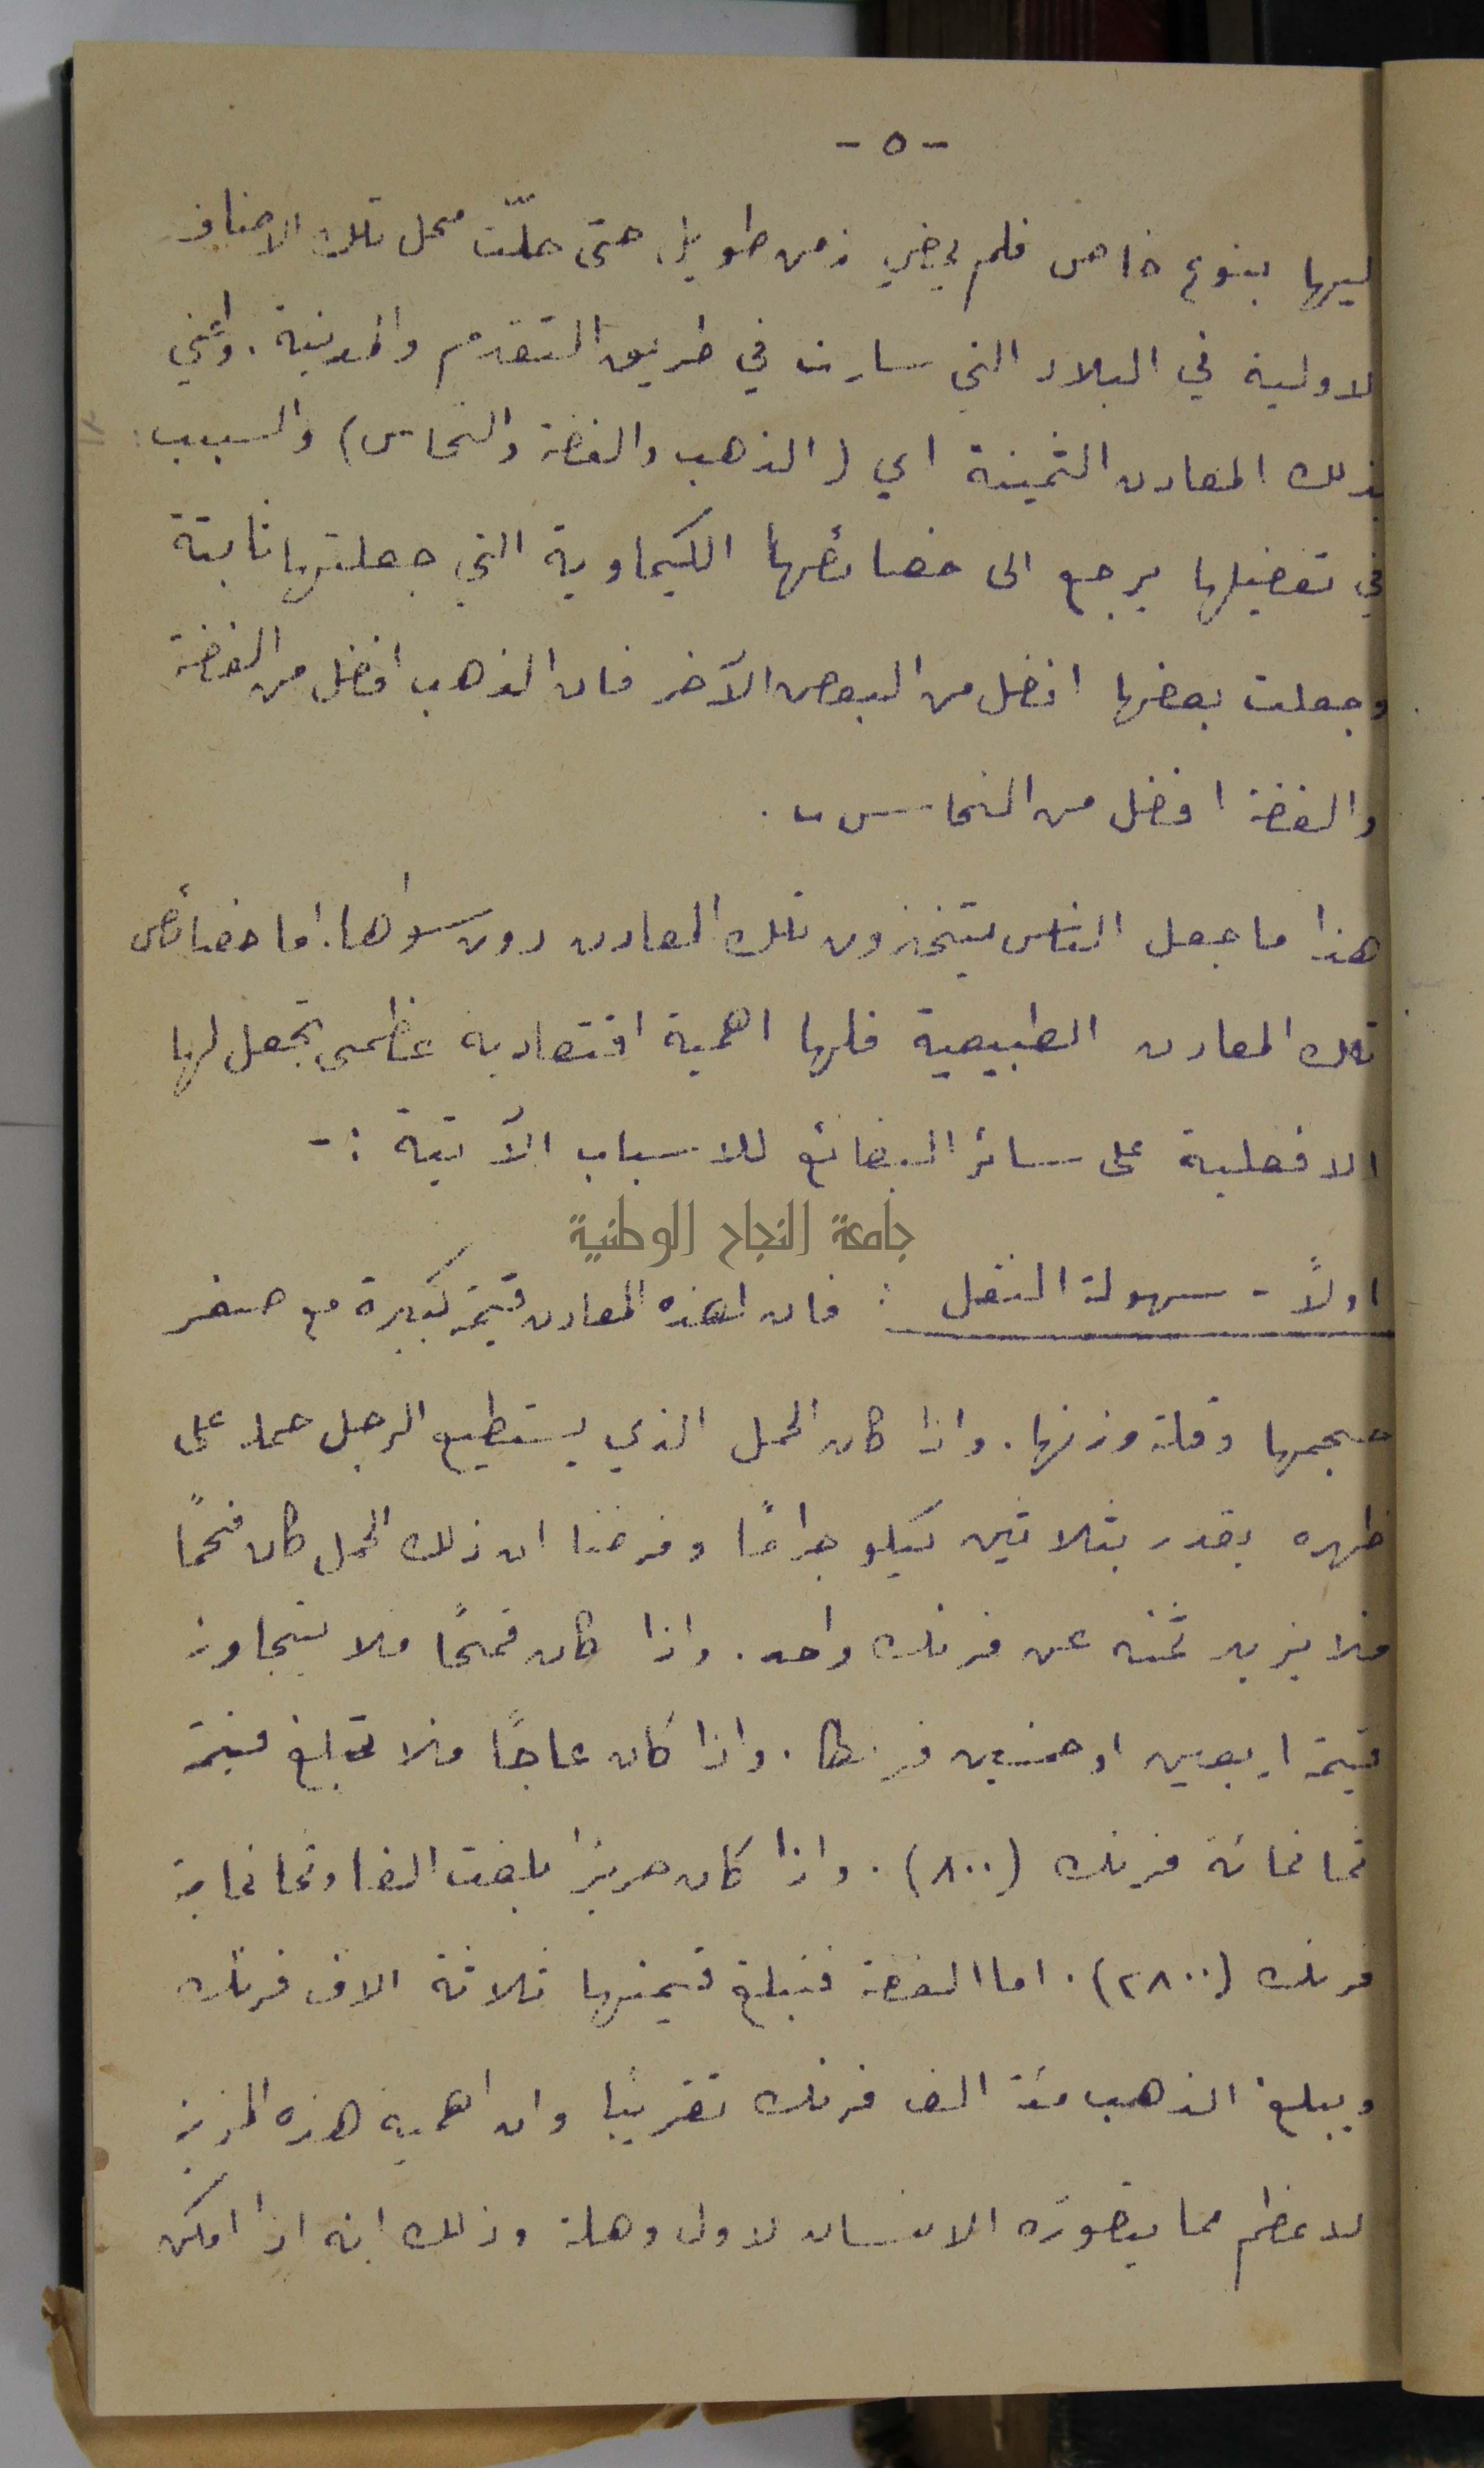 - ٥ -
ليها بنوع خاص فلم يمضي زمن طويل حتى حلّت محل تلك الاصناف
لاولية في البلاد التي سارت في طريق التقدم والمدنية. واعني
بذلك المعادن الثمينة اي (الذهب والفضة والنحاس) والسبب
في تفضيلها يرجع الى خصائصها الكيماوية التي جعلتها ثابتة
وجعلت بعضها افضل من البعض الآخر فان الذهب افضل من الفضة
والفضة افضل من النحاس .
هذا ما جعل الناس يتخذون تلك المعادن دون سواها. اما خصائص
تلك المعادن الطبيعية فلها اهمية اقتصادية عظمى تجعل لها
الافضلية على سائر البضائع للاسباب الآتية :-
جامعة النجاح الوطنية
اولاً - سهولة النقل : فان لهذه المعادن قيمة كبيرة مع صغر
حجمها وقلة وزنها. واذا كان الحمل الذي يستطيع الرجل حمله على
ظهره يقدر بثلاثين كيلو جرامًا وفرضنا ان ذلك الحمل كان فحمًا
فلا يزيد ثمنه عن فرنك واحد. واذا كان قمحًا فلا يتجاوز
قيمة اربعين او خمسين فرنكا. واذا كان عاجًا فلا تبلغ قيمة
ثمانمائة فرنك (٨٠٠). واذا كان حريرًا بلغت الفا وثمانماية
فرنك (٢٨٠٠). اما الفضة فتبلغ قيمتها ثلاثة الاف فرنك
ويبلغ الذهب مئة الف فرنك تقريبًا وان اهمية هذه المزية
لاعظم مما يتصوره الانسان لاول وهلة وذلك انه اذا امكن